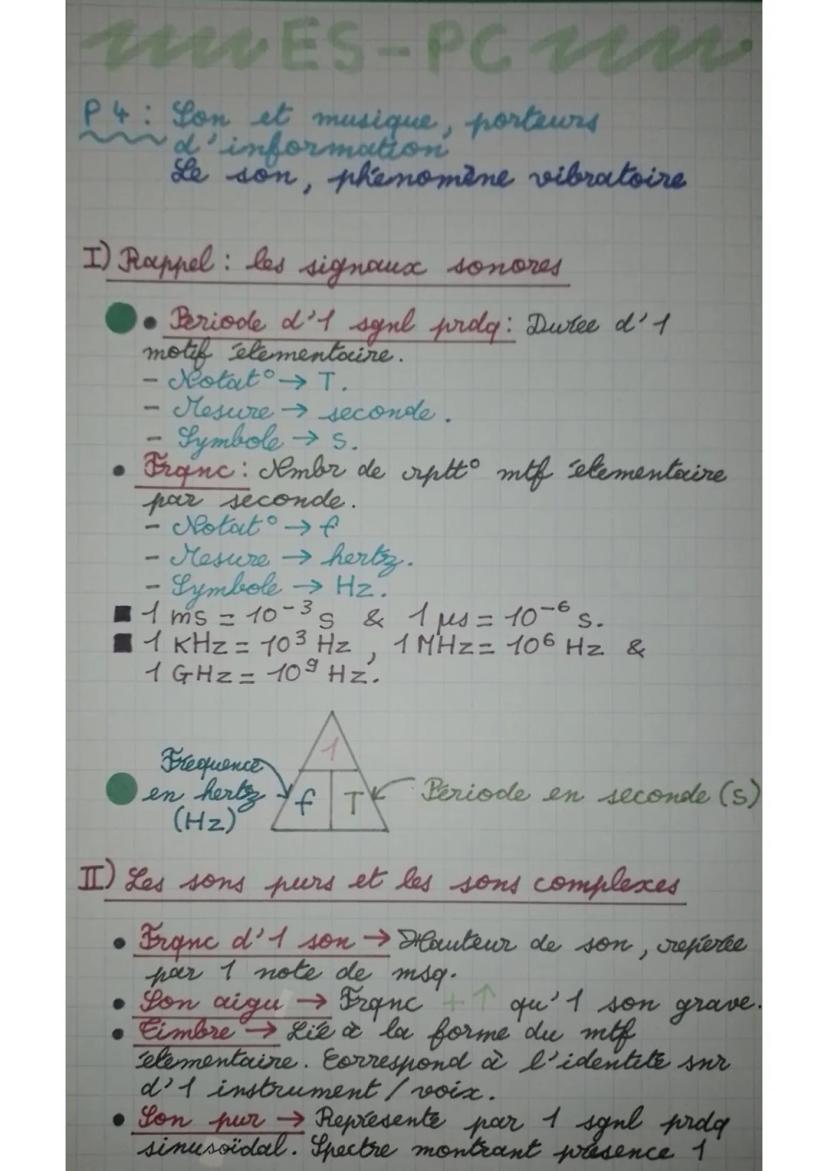 ES-PC
P4 : Son et musique, porteurs
d'information
Le son, phénomène vibratoire
I) Rappel : les signaux sonores
• Période d'1 sgnl prdq : Durée d'1
motif élémentaire.
- Notat° → T.
- Mesure → seconde.
- Symbole → s.
• Frqnc : Nmbr de rptt° mtf élémentaire
par seconde.
- Notat° → f
- Mesure → hertz.
- Symbole → Hz.
■ 1 ms = 10⁻³ s & 1 µs = 10⁻⁶ s.
■ 1 KHz = 10³ Hz , 1 MHz = 10⁶ Hz &
1 GHz = 10⁹ Hz.
1
Fréquence
en hertz
(Hz)
f T
Période en seconde (s)
II) Les sons purs et les sons complexes
• Frqnc d'1 son → Hauteur de son, repérée
par 1 note de msq.
• Son aigu → Frqnc + ↑ qu'1 son grave.
• Timbre → Lié à la forme du mtf
élémentaire. Correspond à l'identité snr
d'1 instrument / voix.
• Son pur → Représenté par 1 sgnl prdq
sinusoïdal. Spectre montrant présence 1